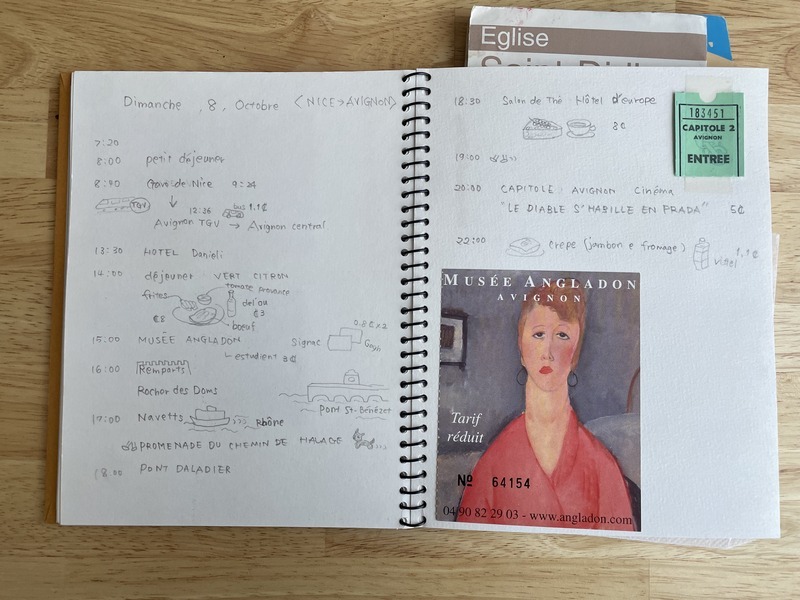 Eglise
Dimanche , 8, Octobre <NICE→AVIGNON>
7:20
8:00 petit déjeuner
8:40 Gare de Nice 9:24
TGV
12:36 bus 1.1€
Avignon TGV → Avignon central
13:30 HOTEL Danieli
14:00 déjeuner VERT CITRON
frites tomate provence
de l'ou
€8 €3
boeuf
15:00 MUSÉE ANGLADON
estudient 3€
0.8€×2
Signac Gogh
16:00 Remparts
Rocher des Doms
Pont St-Bénézet
17:00 Navetts Rhône
PROMENADE DU CHEMIN DE HALAGE
18:00 PONT DALADIER
18:30 Salon de Thé Hôtel d'europe
8€
19:00
20:00 CAPITOLE : AVIGNON Cinéma
"LE DIABLE S'HABILLE EN PRADA" 5€
22:00 crêpe (jambon e fromage) 1,1€
vittel
183451
CAPITOLE 2
AVIGNON
ENTREE
MUSÉE ANGLADON
AVIGNON
Tarif
réduit
Nº 64154
04 90 82 29 03 - www.angladon.com